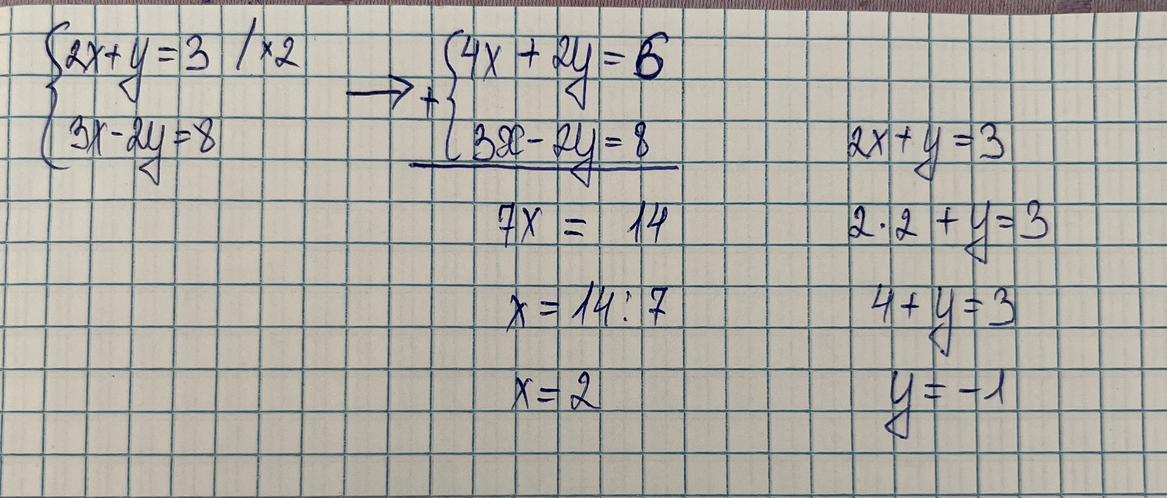 2x+y=3 /×2
3x-2y=8
→
+
4x+2y=6
3x-2y=8
7x = 14
x=14:7
x=2
2x+y=3
2·2+y=3
4+y=3
y=-1